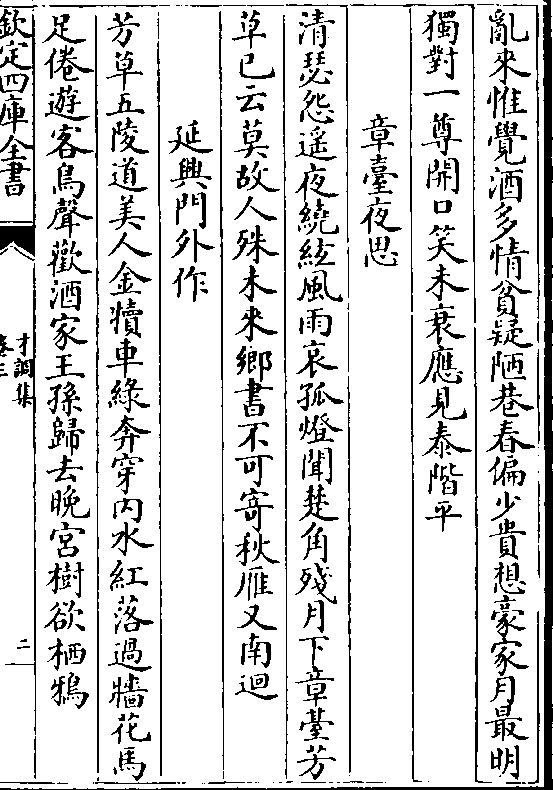 亂來惟覺酒多情貧疑陋巷春偏少貴想豪家月最明
獨對一尊開口笑未衰應見泰階平
章臺夜思
清瑟怨遥夜繞絃風雨哀孤燈聞楚角殘月下章䑓芳
草已云莫故人殊未來鄉書不可寄秋雁又南迴
延興門外作
芳草五陵道美人金犢車綠奔穿内水紅落過牆花馬
足倦遊客鳥聲歡酒家王孫歸去晚宮樹欲栖鴉
欽定四庫全書
才調集
卷三
二